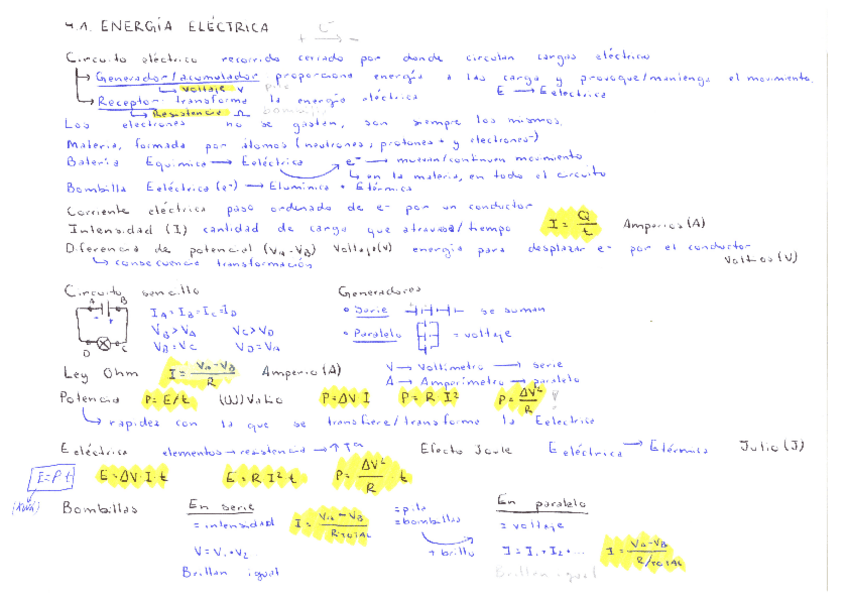 4.1. ENERGÍA ELÉCTRICA
+ e- → -
Circuito eléctrico recorrido cerrado por donde circulan cargas eléctrica
Generador/acumulador proporciona energía a las carga y provoque/mantenga el movimiento.
→ Voltaje V pila E → Eelectrica
Receptor transforma la energía eléctrica
→ Resistencia Ω bombilla
Los electrones no se gastan, son siempre los mismos.
Materia, formada por átomos (neutrones, protones+ y electrones-)
Batería Equimica → Eeléctrica e- → muevan/continuen movimiento
→ en la materia, en todo el circuito
Bombilla Eeléctrica (e-) → Elumínica + Etérmica
Corriente eléctrica paso ordenado de e- por un conductor
Intensidad (I) cantidad de carga que atraviesa/tiempo I = Q/t Amperios (A)
Diferencia de potencial (VA-VB) Voltaje(V) energía para desplazar e- por el conductor
→ consecuencia transformación Voltios (V)
Circuito sencillo Generadores
A B IA=IB=IC=ID • Serie se suman
- + VB>VA VC>VD • Paralelo = voltaje
D C VB=VC VD=VA
Ley Ohm I = VA-VB/R Amperio (A) V → Voltímetro → serie
A → Amperímetro → paralelo
Potencia P=E/t (W) Vatio P=ΔV I P=R·I² P=ΔV²/R
→ rapidez con la que se transfiere/transforma la Eelectrica
Eeléctrica elementos → resistencia → ↑Tª Efecto Joule Eeléctrica → Etérmica Julio (J)
E=P·t E=ΔV·I·t E=R I² t P=ΔV²/R · t
Bombillas En serie =pila En paralelo
= intensidad I = VA-VB/RTOTAL =bombillas = voltaje
V=V1+V2... + brillo I=I1+I2+... I = VA-VB/R/TOTAL
Brillan igual Brillan igual